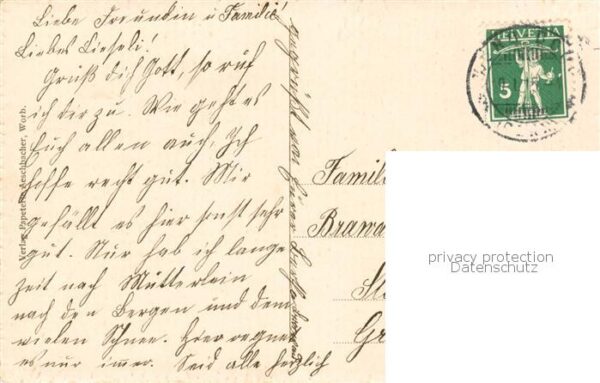 Liebe Freundin u Familie!
Liebes Lieseli!
Grüß dich Gott, so ruf
ich dir zu. Wie geht es
Euch allen auch, Ich
hoffe recht gut. Mir
gefällt es hier sonst sehr
gut. Nur hab ich lange
zeit nach Mütterlein
nach den Bergen und dem
vielen Schnee. Hier regnet
es nur immer. Seid alle herzlich
gegrüßt von
Verlag Papeterie Aeschbacher, Worb.
HELVETIA
5
Famil
Brawa
St
Gr
privacy protection
Datenschutz